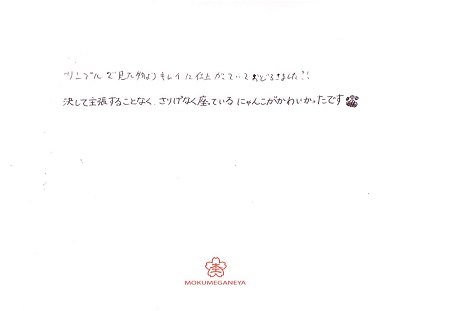 サンプルで見た物よりキレイに仕上がっていておどろきました!!
決して主張することなく、さりげなく座っているにゃんこがかわいかったです
MOKUMEGANEYA